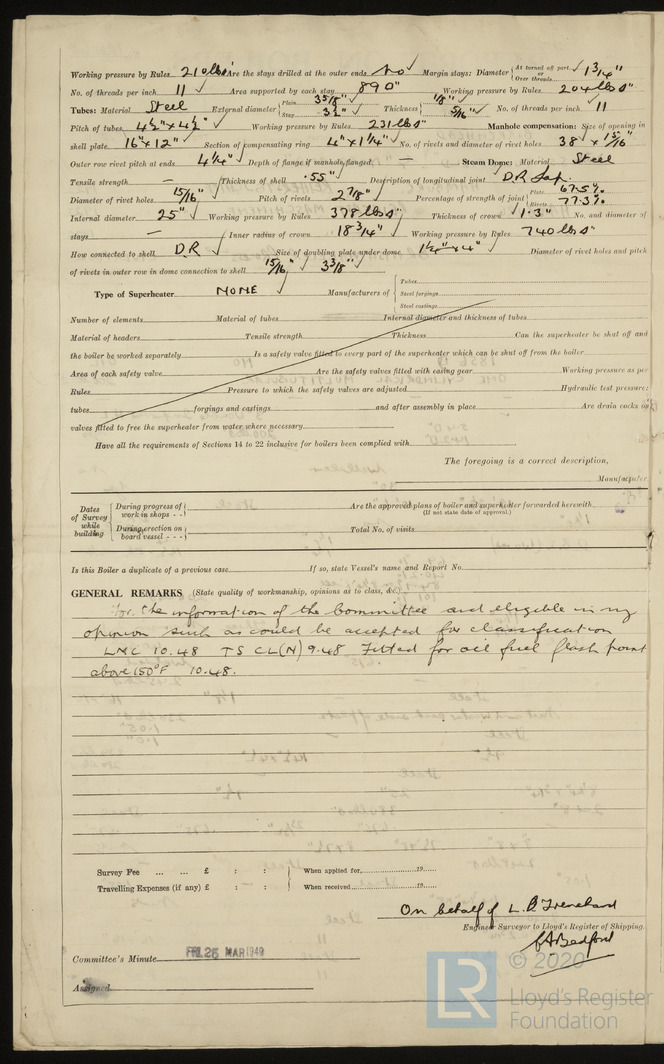 Working pressure by Rules 210 lbs" Are the stays drilled at the outer ends No Margin stays: Diameter { At turned off part, or Over threads 1 3/4"
No. of threads per inch 11 Area supported by each stay 890" Working pressure by Rules 204 lbs"
Tubes: Material Steel External diameter { Plain 3 5/8" Stay 3 1/2" Thickness { 1/8" 5/16" No. of threads per inch 11
Pitch of tubes 4 1/2" x 4 1/2" Working pressure by Rules 231 lbs" Manhole compensation: Size of opening in
shell plate 16" x 12" Section of compensating ring 4" x 1 1/4" No. of rivets and diameter of rivet holes 38 x 15/16"
Outer row rivet pitch at ends 4 1/4" Depth of flange if manhole flanged — Steam Dome: Material Steel
Tensile strength — Thickness of shell .55" Description of longitudinal joint D.R Lap.
Diameter of rivet holes 15/16" Pitch of rivets 2 7/8" Percentage of strength of joint { Plate 67.5% Rivets 77.3%
Internal diameter 25" Working pressure by Rules 378 lbs" Thickness of crown 1.3" No. and diameter of
stays — Inner radius of crown 18 3/4" Working pressure by Rules 740 lbs"
How connected to shell D.R Size of doubling plate under dome 1 1/4" x 4" Diameter of rivet holes and pitch
of rivets in outer row in dome connection to shell 15/16" 3 3/8"
Type of Superheater NONE Manufacturers of { Tubes
Steel forgings
Steel castings
Number of elements Material of tubes Internal diameter and thickness of tubes
Material of headers Tensile strength Thickness Can the superheater be shut off and
the boiler be worked separately Is a safety valve fitted to every part of the superheater which can be shut off from the boiler
Area of each safety valve Are the safety valves fitted with easing gear Working pressure as per
Rules Pressure to which the safety valves are adjusted Hydraulic test pressure:
tubes forgings and castings and after assembly in place Are drain cocks or
valves fitted to free the superheater from water where necessary
Have all the requirements of Sections 14 to 22 inclusive for boilers been complied with
The foregoing is a correct description,
Manufacturer
Dates of Survey while building { During progress of work in shops - - Are the approved plans of boiler and superheater forwarded herewith
(If not state date of approval.)
During erection on board vessel - - - Total No. of visits
Is this Boiler a duplicate of a previous case If so, state Vessel's name and Report No.
GENERAL REMARKS (State quality of workmanship, opinions as to class, &c.)
For the information of the Committee and eligible in my
opinion such as could be accepted for classification
LMC 10.48 TS CL(N) 9.48 Fitted for oil fuel flash point
above 150°F 10.48.
Survey Fee ... ... £ : : When applied for 19
Travelling Expenses (if any) £ : : When received 19
On behalf of L. B Trenchard
Engineer Surveyor to Lloyd's Register of Shipping.
Bedford
Committee's Minute FRI. 25 MAR 1949
Assigned
LR © 2020
Lloyd's Register
Foundation